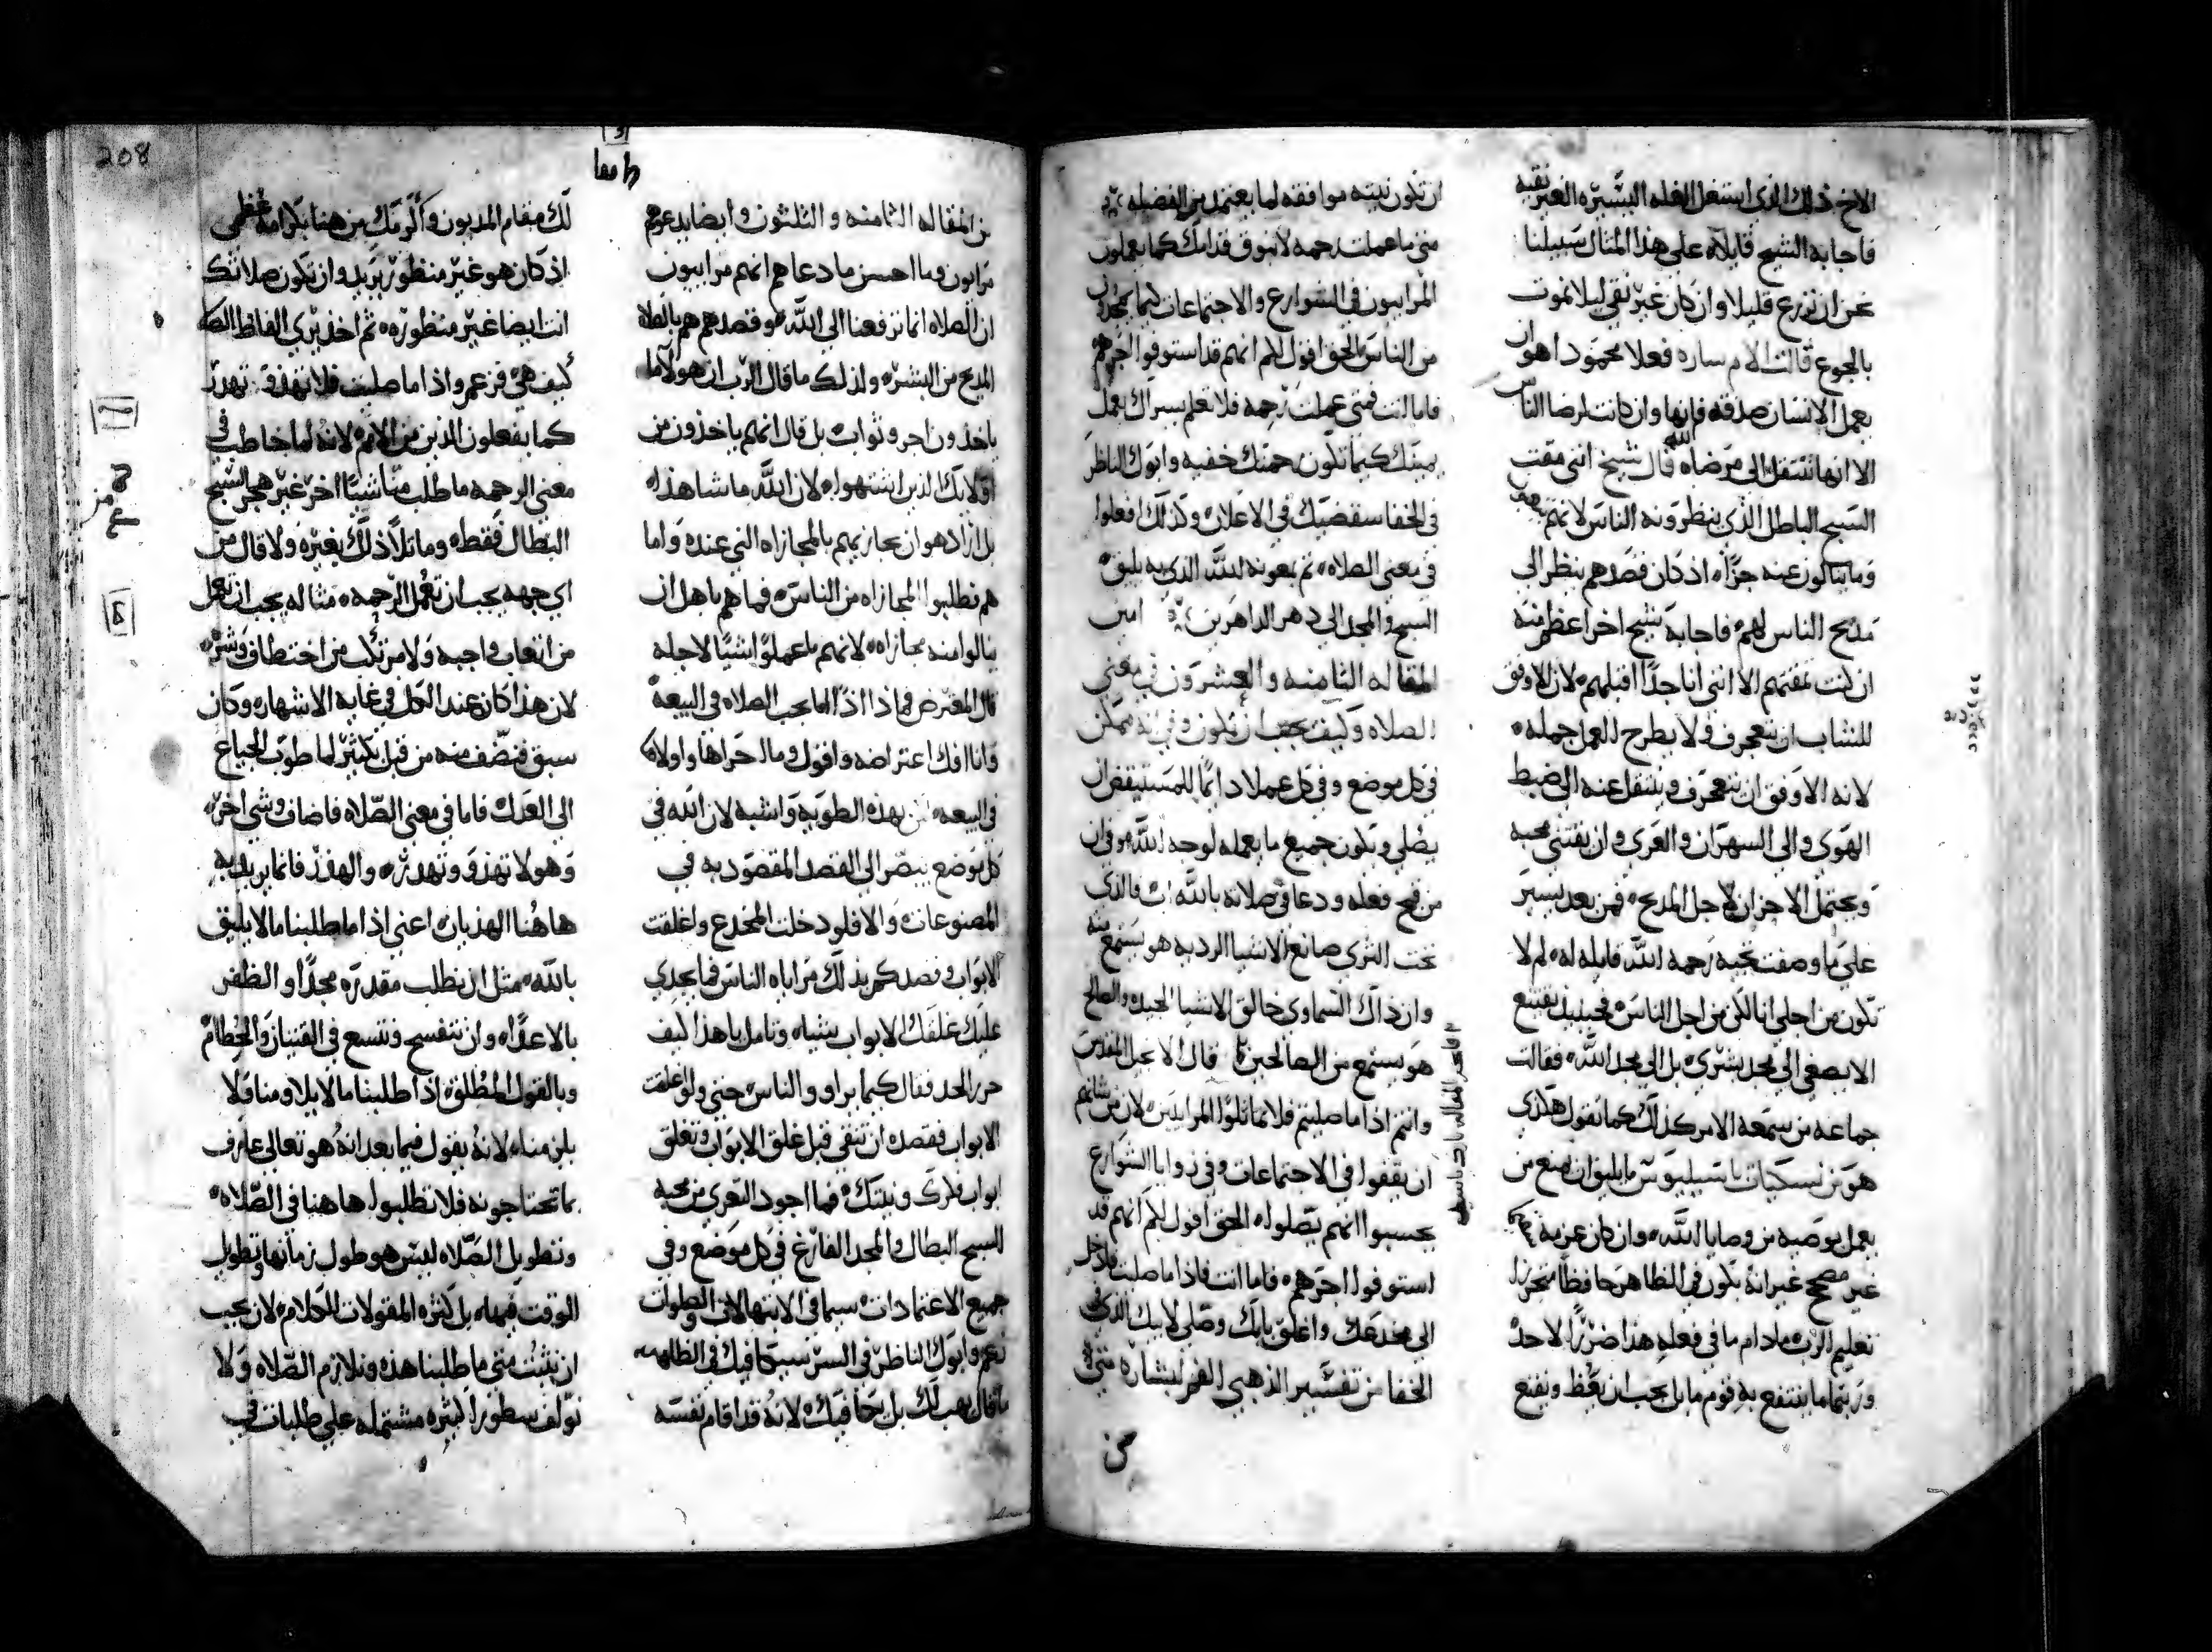 الاخ ذلك الذي استغل الغله اليسيره الغير نقيه
فاجابه الشيخ قايلا ه على هذا المثال سبيلنا
نحن ان نزرع قليلا وان كان غير نقي ليلا نموت
بالجوع قالت الام ساره فعلا محمودا هو ان
يعمل الانسان صدقه فانها وان كانت لرضا الناس
الا انها تنتقل الى مرضاه الله قال شيخ انني مقت
السبح الباطل الذي ينظرونه الناس لانهم
وما ينالون عنه جزاء اذ كان قصدهم ينظر الى
مديح الناس لهم ه فاجابه شيخ اخر اعظم منه
ان كنت تمقتهم الا انني انا جدا اقبلهم ه لان الاوفق
للشاب ان يتعجرف ولا يطرح العمل جمله ه
لانه الاوفق ان يتعجرف وينتقل عنه الى ضبط
الهوى والى السهر ان والعري وان يقتني محبه
ويحتمل الاحزان لاجل المديح ه فمن بعد يسير
على ما وصفت تجيه رحمه الله قايله له ه لم لا
تكون من اجلي انا لكن من اجل الناس ه فحينيذ يقتنع
الا يصغي الى مجد بشري ه بل الى مجد الله ه فقالت
جماعه من سمعه الامر كذلك كما تقول هكذي
هو من نسكيات باسيليوس ما يليق ان يمنع من
يعمل بوصيه من وصايا الله ه وان كان عزمه
غير مصحح غير انه يكون في الظاهر حافظا متحرزا
تعليم الرب ه مادام ما في فعله هذا ضررا لاحد
وربما ما ينتفع به قوم ما بل يجب ان يعظ ويقنع
ان تكون نيته موافقه لما يعتمد من الفضيله
متى ما عملت رحمه لا تبوق قدامك كما يعملون
المراييون في الشوارع والاجتماعات كيما يمجدوا
من الناس الحق اقول لكم انهم قد استوفوا اجرهم
فاما انت فمتى عملت رحمه فلا تعلم يسراك بعمل
يمينك كيما تكون رحمتك خفيه وابوك الناظر
في الخفا سيقضيك في الاعلان وكذلك افعلوا
في معنى الصلاه ه تم بعونه لله الذي به يليق
السبح والمجد الى دهر الداهرين امين
المقاله الثامنه والعشرون في معنى
الصلاه وكيف يجب ان تكون وفي انه ممكن
في كل موضع وفي كل عملا دايما للمستيقض ان
يصلي وتكون جميع ما يعمله لوجه الله ه وفي ان
من قبح فعله ودعا في صلاته بالله اب فالذي
تحت الثرى صانع الاشيا الرديه هو يستمع منه
وان ذاك السماوي خالق الاشيا الجيده والصالح
هو يستمع من الصالحين قال الانجيل المقدس
وانتم اذا ما صليتم فلا تماثلوا المرايين ه لان من شانهم
ان يقفوا في الاجتماعات وفي زوايا الشوارع
يحسبوا انهم يصلوا ه الحق اقول لكم انهم قد
استوفوا اجرهم ه فاما انت فاذا ما صليت فادخل
الى مخدعك واغلق بابك وصلي لابيك الذي في
الخفا من تفسير الذهبي الفم لبشاره متى
من
208
من المقاله الثامنه والثلثون وايضا يدعوهم
مرايون وما احسن ما دعاهم انهم مراييون
ان الصلاه انما ترفعنا الى الله ه وقصدهم هم بالصلاه
المديح من البشر ه ولذلك ما قال الرب ان هولا ما
ياخذون اجر وثواب بل قال انهم ياخذون من
اولايك الذين اشتهوا ه لان الله ما شا هذا ه
بل اراد هو ان يجازيهم بالمجازاه التي عنده واما
هم تطلبوا المجازاه من الناس ه فما هم باهل ان
ينالوا منه مجازاه ه لانهم ما عملوا شيا لاجله
قال المعترض فماذا اذا اما يجب الصلاه في البيعه
وانا افك اعتراضه واقول وما احراها واولاه
في البيعه ه بهذه الطويه واشبه لان الله في
كل موضع ينصر الى القصد المقصود به في
المصنوعات ه والا فلو دخلت المخدع واغلقت
الابواب وقصدكم بذلك مراياه الناس فما يجدي
عليك غلقك الابواب شيا ه وتامل يا هذا كيف
حرر الحد فقال كيما يراوو الناس حتى ولو غلقت
الابواب فقصده ان تنقي قبل غلق الابواب وتغلق
ابواب فكرك ونيتك ه فما اجود التعري من محبه
السبح البطال والمجد الفارغ في كل موضع وفي
جميع الاعتمادات ه سيما في الابتهالات والصلوات
نعم وابوك الناظر في السر سيكافيك في الظاهر ه
ما قال يهب لك بل يكافيك ه لانه قد اقام نفسه
لك مقام المديون واكرمك من هنا بكرامه عظمى
اذ كان هو غير منظور يريد وان تكون صلاتك
انت ايضا غير منظوره ه ثم اخذ يري الفاظ الصلاه
كيف هي فزعم واذا ما صليت فلا تهذو تهدر
كما يفعلون الذين من الامم ه لانه لما خاطب في
معنى الرحمه ما طلب منا شيا اخر غير هجر السبح
البطال فقط ه وما تلا ذلك بغيره ولا قال من
اي جهه يجب ان تعمل الرحمه ه مثاله يجب ان تعمل
من اتعاب واجبه ولا من تكب من اختطاف وشره
لان هذا كان عند الكل في غايه الاشهار ه وكان
سبق فنصف منه من قبل بكثير لما طوب الجياع
الى العدل ه فاما في معنى الصلاه فاضاف وشي اخر ه
وهو لا تهذو وتهدر ه والهذر فانما يريد به
هاهنا الهذيان ه اعني اذا ما طلبنا ما لا يليق
بالله ه مثل ان نطلب مقدره مجدا والظفر
بالاعداء وان نتفسح ونتسع في القنيان والحطام
وبالقول المطلق ه اذا طلبنا ما لا يلاومنا ولا
يلزمنا ه لانه يقول فيما بعد انه هو تعالى عارف
بما تحتاجونه فلا تطلبوا هاهنا في الصلاه ه
وتطويل الصلاه ليس هو طول زمانها وتطويل
الوقت فيها ه بل كثره المقولات الكلام ه لان يجب
ان نثبت متى ما طلبنا هذه ونلازم الصلاه ولا
نولف سطورا كثيره مشتمله على طلبات في